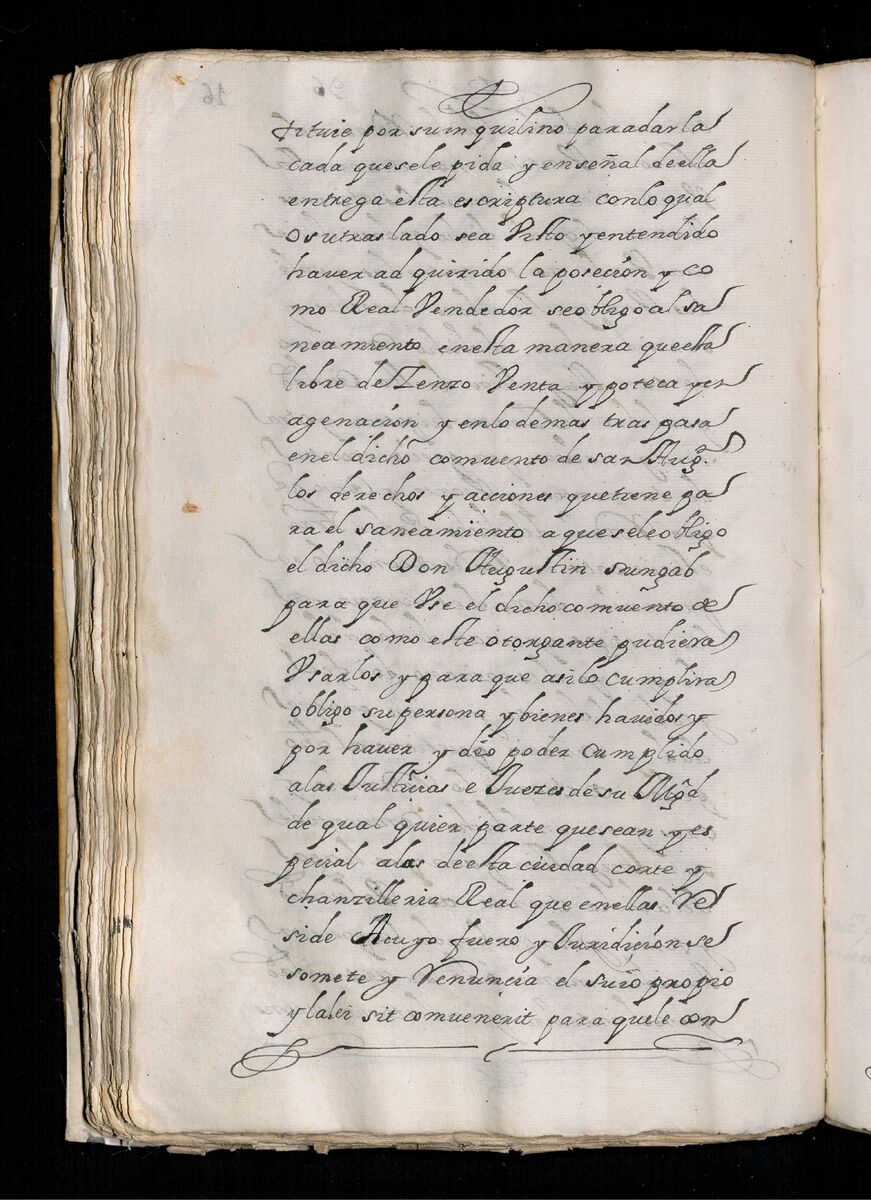 tituie por su inquilino para darla
cada que sele pida y en señal de ella
entrega esta escriptura con lo qual
o su traslado sea Visto y entendido
haver adquirido la poseción y co
mo Real Vendedor se obligo al sa
neamiento en esta manera que esta
libre de Zenzo Venta ypoteca y en
agenación y en lo demas traspasa
en el dicho comuento de san Augn.
los derechos y acciones que tiene pa
ra el saneamiento a que se le obligo
el dicho Don Augustin sungab
para que Vse el dicho comuento de
ellas como este otorgante pudiera
Vsarlos y para que asi lo cumplira
obligo su persona y bienes havidos y
por haver y dio poder cumplido
a las Justicias e Juezes de su Mgd
de qual quier parte que sean y es
pecial a las de esta ciudad corte y
chanzilleria Real que en ellas Re
side A cuyo fuero y Juridición se
somete y Renuncia el suio propio
y la lei sit comuenerit para que le com